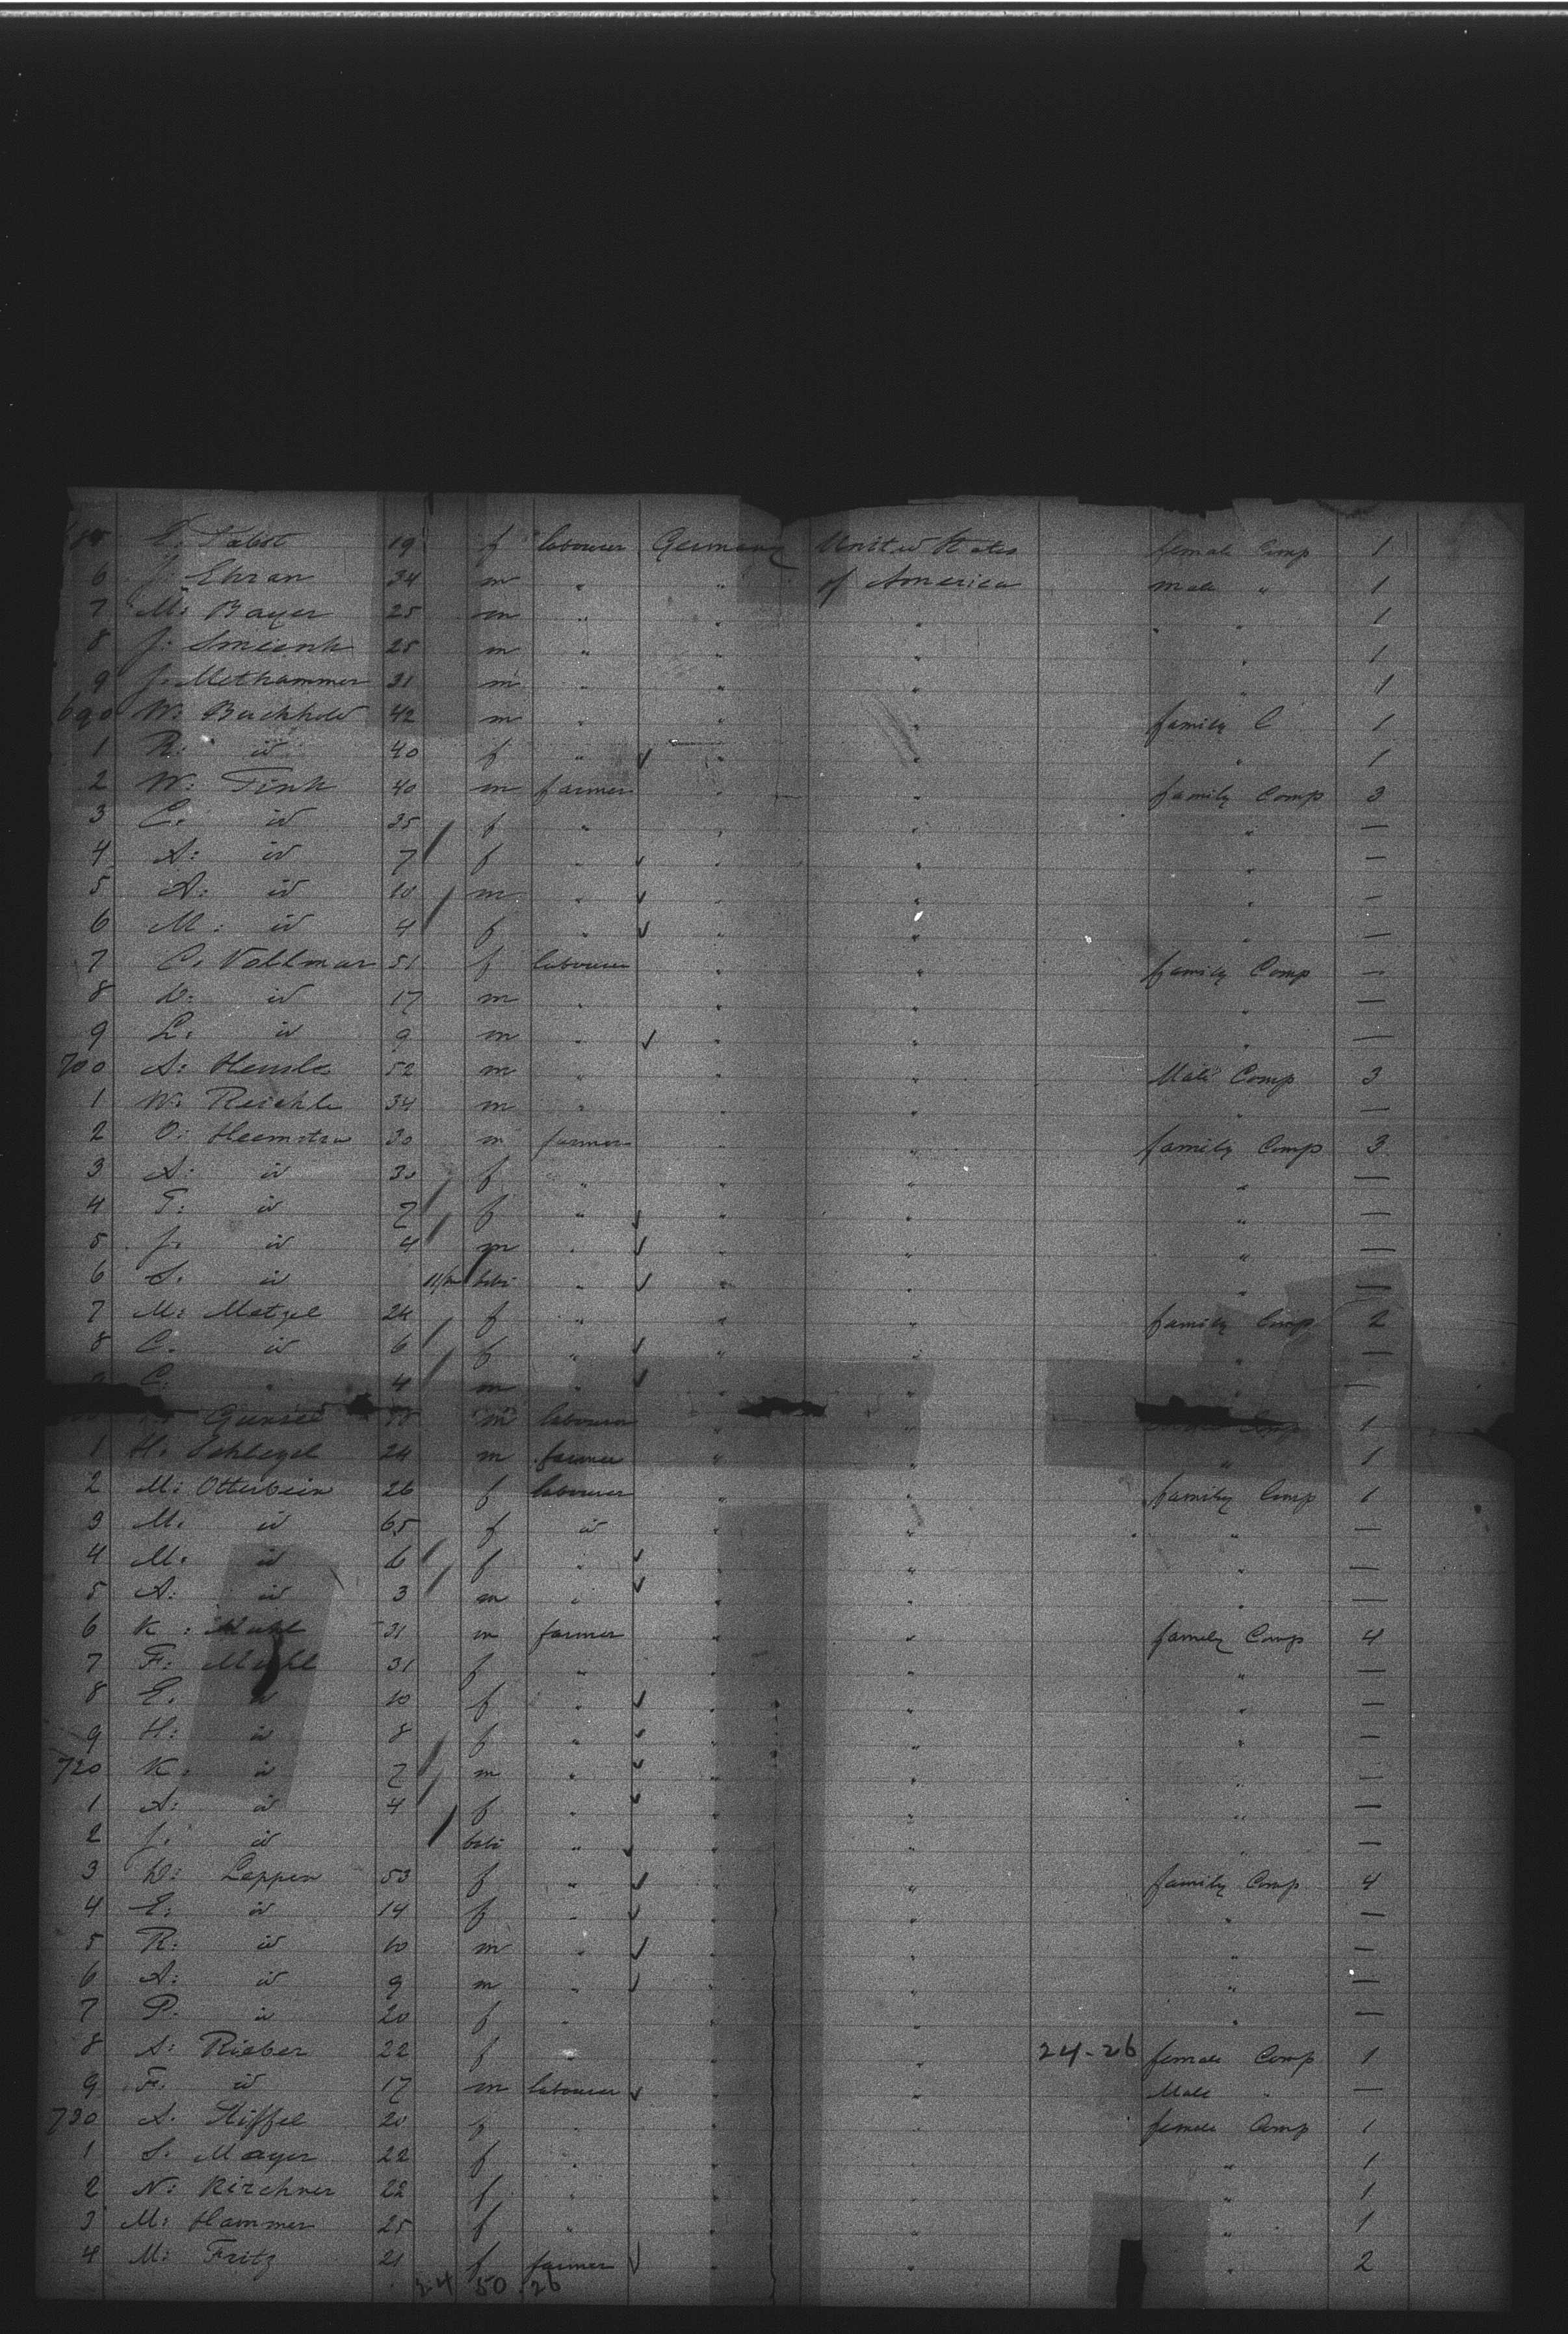 E. Pabst 19 f labourer Germany United States female Comp 1
6 J: Ehran 34 m " " of America male " 1
7 M: Bayer 25 m " " " " " 1
8 J: Smeenk 25 m " " " " 1
9 J. Methammer 31 m " " " " 1
690 W: Buchhold 42 m " " " family C 1
1 R: id 40 f " " " " 1
2 W: Fink 40 m farmer " " family Comp 3
3 C. id 35 f " " " " —
4 A: id 7 f " " " " —
5 A: id 10 m " " " " —
6 M: id 4 f " " " " —
7 C. Vollmar 51 f labourer " " family Comp —
8 D: id 17 m " " " " —
9 L: id 9 m " " " " —
700 A: Hensle 52 m " " " Male Comp 3
1 W: Reichle 34 m " " " " —
2 O: Heemstra 30 m farmer " " family Comp 3
3 A: id 30 f " " " " —
4 T: id 7 f " " " " —
5 J. id 4 m " " " " —
6 S. id 11/m bebi " " " " —
7 M: Metzel 24 f " " " family Comp 2
8 C. id 6 f " " " " —
C. " 4 m " " " —
m labourer " " Comp 1
1 H. Schlegel 24 m farmer " " " 1
2 M: Otterbein 26 f labourer " " family Comp 1
3 M. id 65 f id " " " —
4 M. id 6 f " " " " —
5 A: id 3 m " " " " —
6 K: 31 m farmer " " family Comp 4
7 F: 31 f " " " " —
8 E. id 10 f " " " " —
9 H: id 8 f " " " " —
720 K. id 7 m " " " " —
1 A: id 4 f " " " " —
2 J. id bebi " " " " —
3 D: Leppen 53 f " " " family Comp 4
4 E: id 14 f " " " " —
5 R: id 10 m " " " " —
6 A: id 9 m " " " " —
7 P. id 20 f " " " " —
8 A: Rieber 22 f " " " 24-26 female Comp 1
9 F. id 17 m labourer " " Male " —
730 A. Stiffel 20 f " " " female Comp 1
1 S. Mayer 22 f " " " " 1
2 N: Kirchner 22 f " " " " 1
3 M: Hammer 25 f " " " " 1
4 M: Fritz 21 f farmer " " " 2
24 50 26